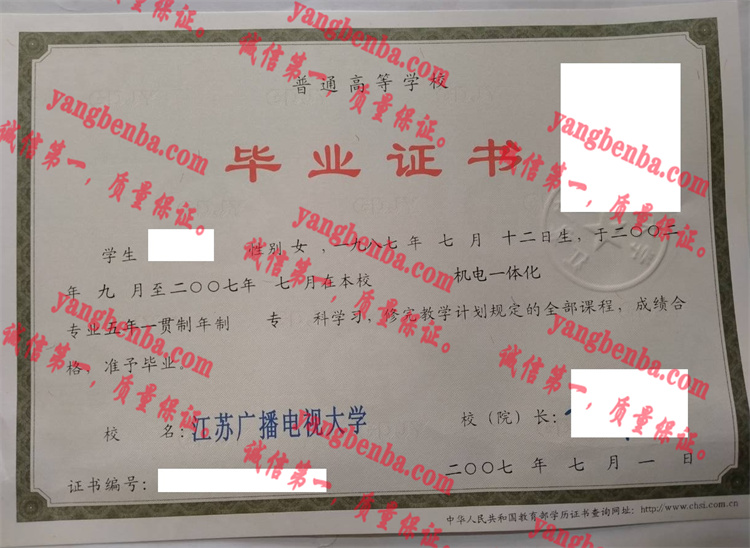 普通高等学校
毕业证书
学生 性别 女 ，一九八七 年 七 月 十二日生，于二〇〇二
年 九 月至二〇〇七年 七 月在本校 机电一体化
专业五年一贯制年制 专 科学习，修完教学计划规定的全部课程，成绩合
格，准予毕业。
校 名：江苏广播电视大学 校（院）长：
二〇〇七 年 七 月 一 日
证书编号：
中华人民共和国教育部学历证书查询网址：http://www.chsi.com.cn
yangbenba.com
诚信第一，质量保证。
yangbenba.com
诚信第一，质量保证。
yangbenba.com
诚信第一，质量保证。
yangbenba.com
诚信第一，质量保证。
yangbenba.com
诚信第一，质量保证。
yangbenba.com
诚信第一，质量保证。
yangbenba.com
诚信第一，质量保证。
yangbenba.com
诚信第一，质量保证。